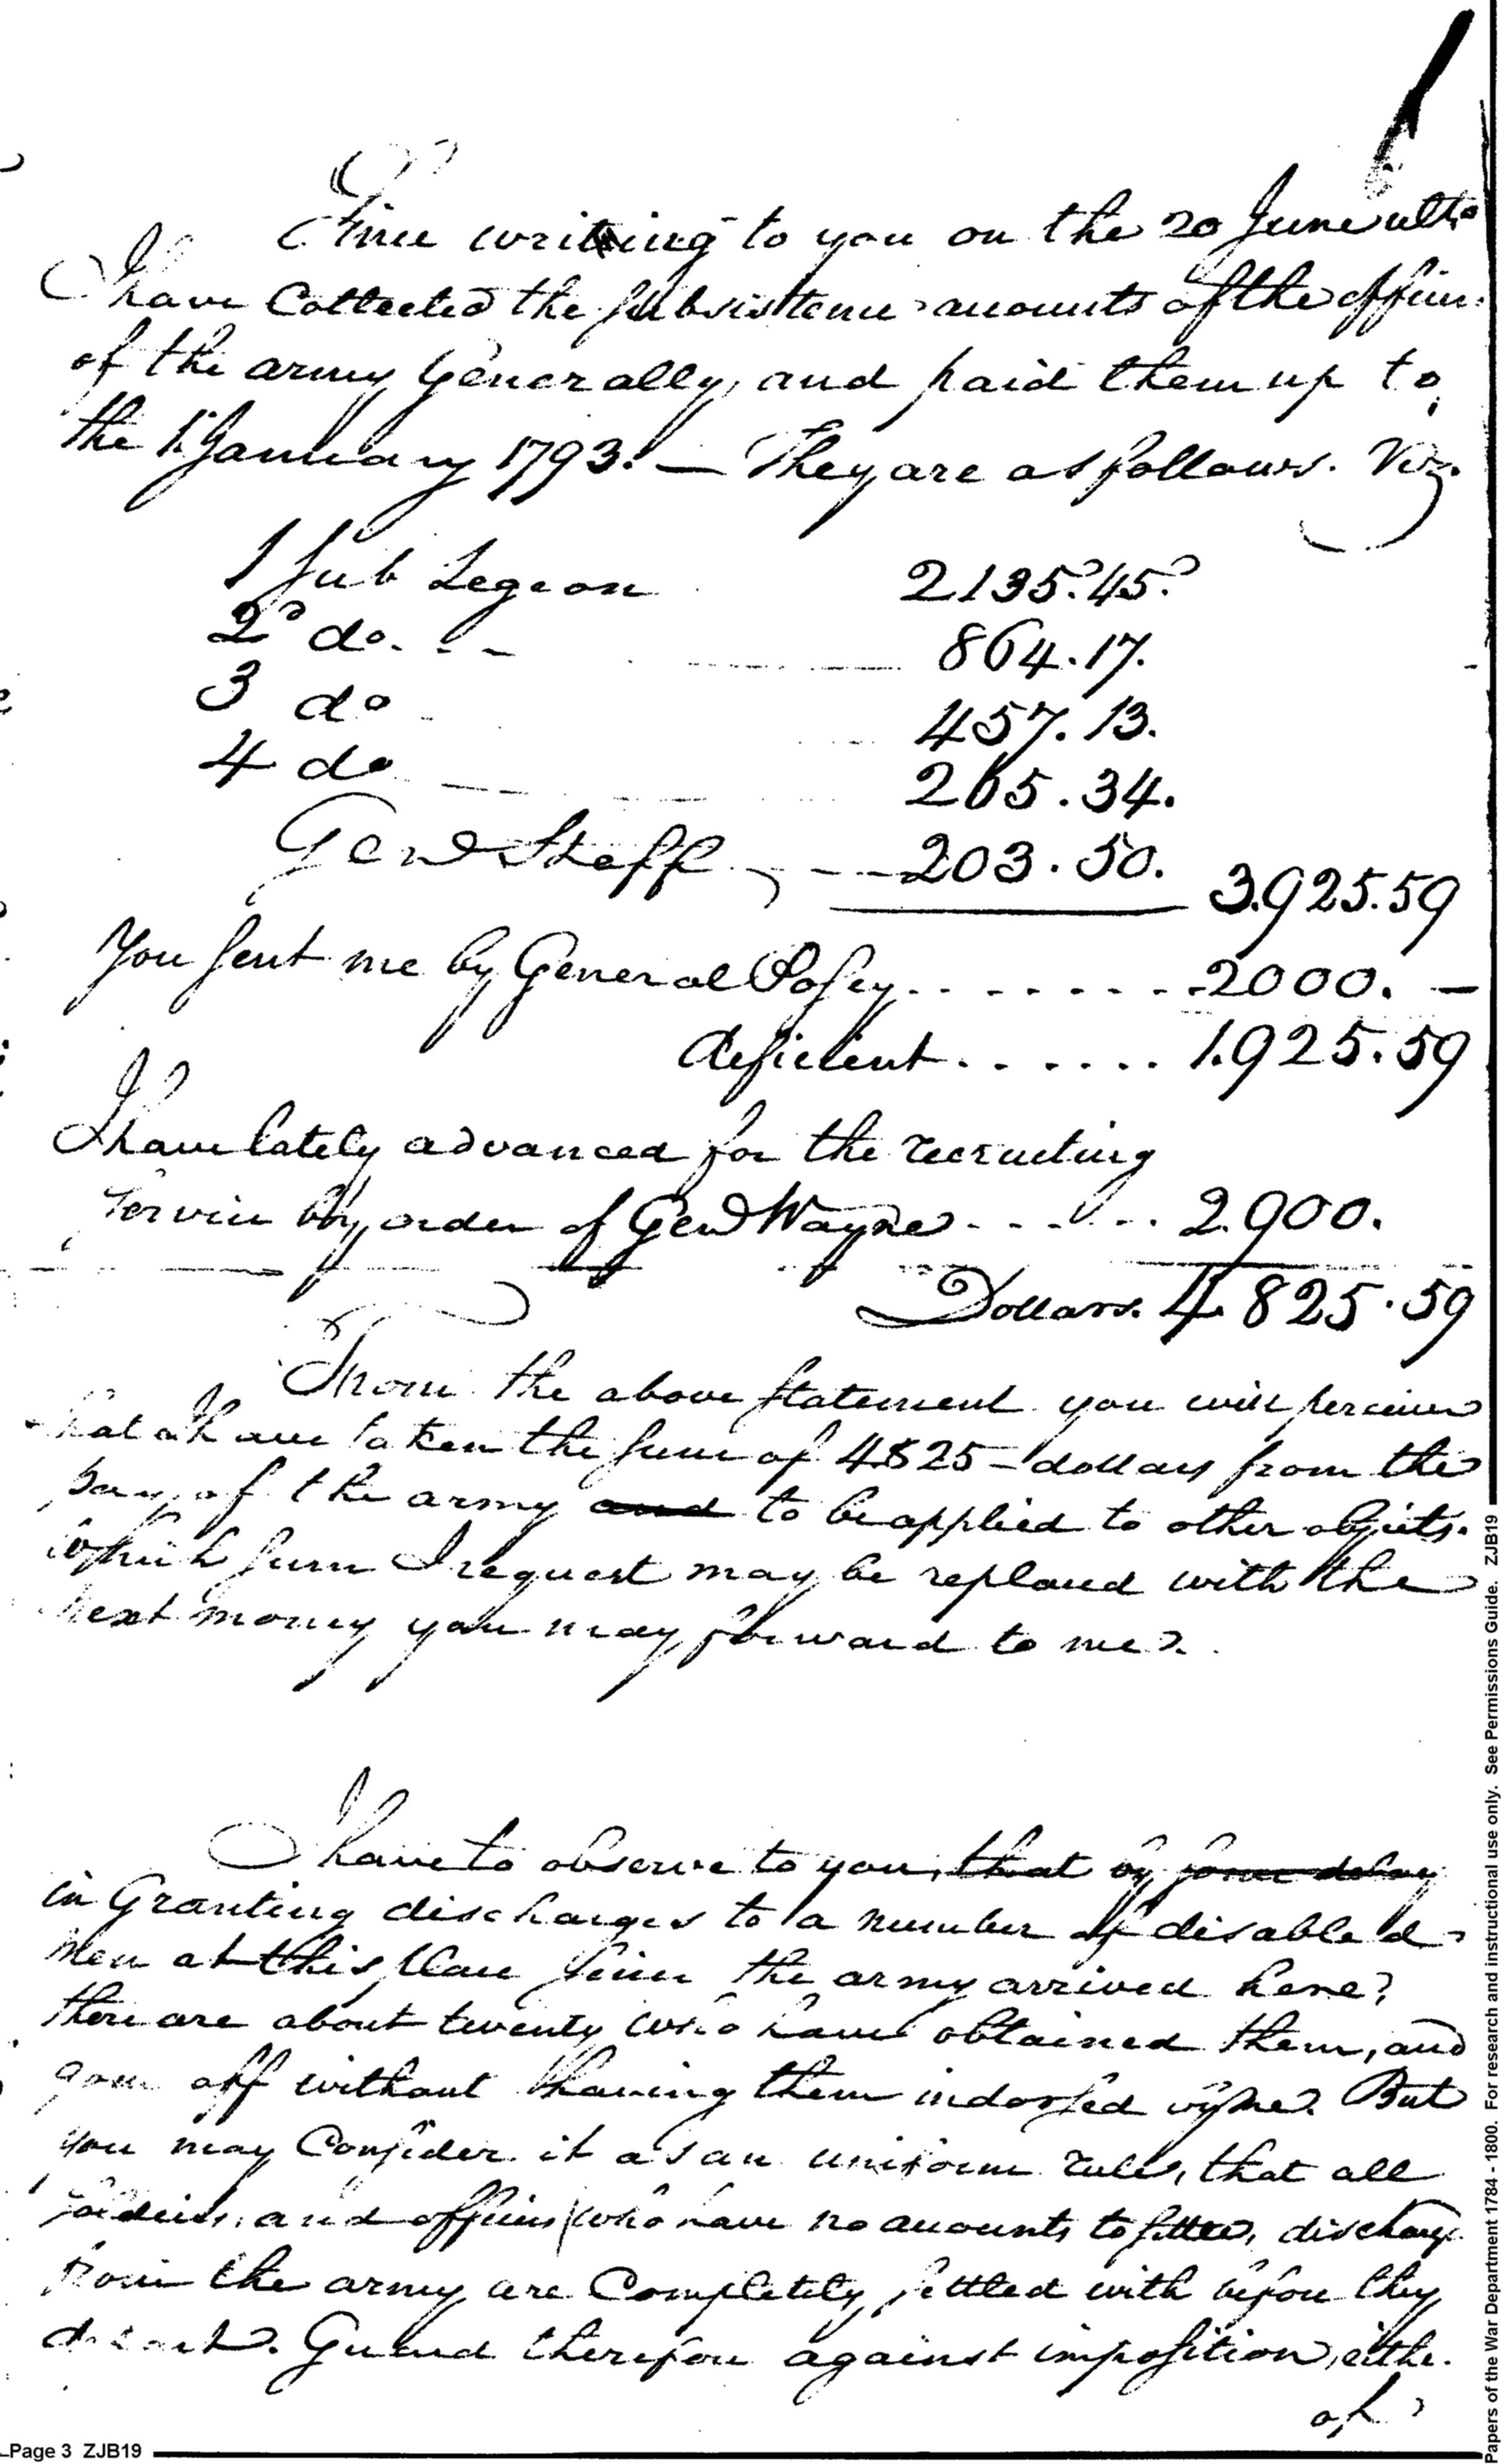 Since writing to you on the 20 June ulto
I have Collected the subsistence accounts of the officers
of the army Generally, and paid them up to
the 1st January 1793. — They are as follows. Viz.
1 Sub Legion 2135.45.
2d do. - - 864.17.
3 do 457.13.
4 do 265.34.
Genl Staff - - - 203.50. 3.925.59
You sent me by General Posey . . . . . . . . 2000. —
deficient . . . . . . 1.925.59
I have lately advanced for the recruiting
Service by order of Genl Wayne - - - - . . . 2.900.
Dollars. 4.825.59
From the above statement you will perceive
that I have taken the sum of 4825 – dollars from the
pay of the army and to be applied to other objects.
which sum I request may be replaced with the
next money you may forward to me.
I have to observe to you, that by some delay
in Granting discharges to a number of disabled
men at this place since the army arrived here,
there are about twenty who have obtained them, and
gone off without having them indorsed by me. But
you may Consider it as an uniform rule, that all
soldiers, and officers who have no accounts to settle, discharg
from the army are Completely settled with before they
depart. Guard therefore against imposition, eithe.
of
Page 3 ZJB19
Papers of the War Department 1784 - 1800. For research and instructional use only. See Permissions Guide. ZJB19